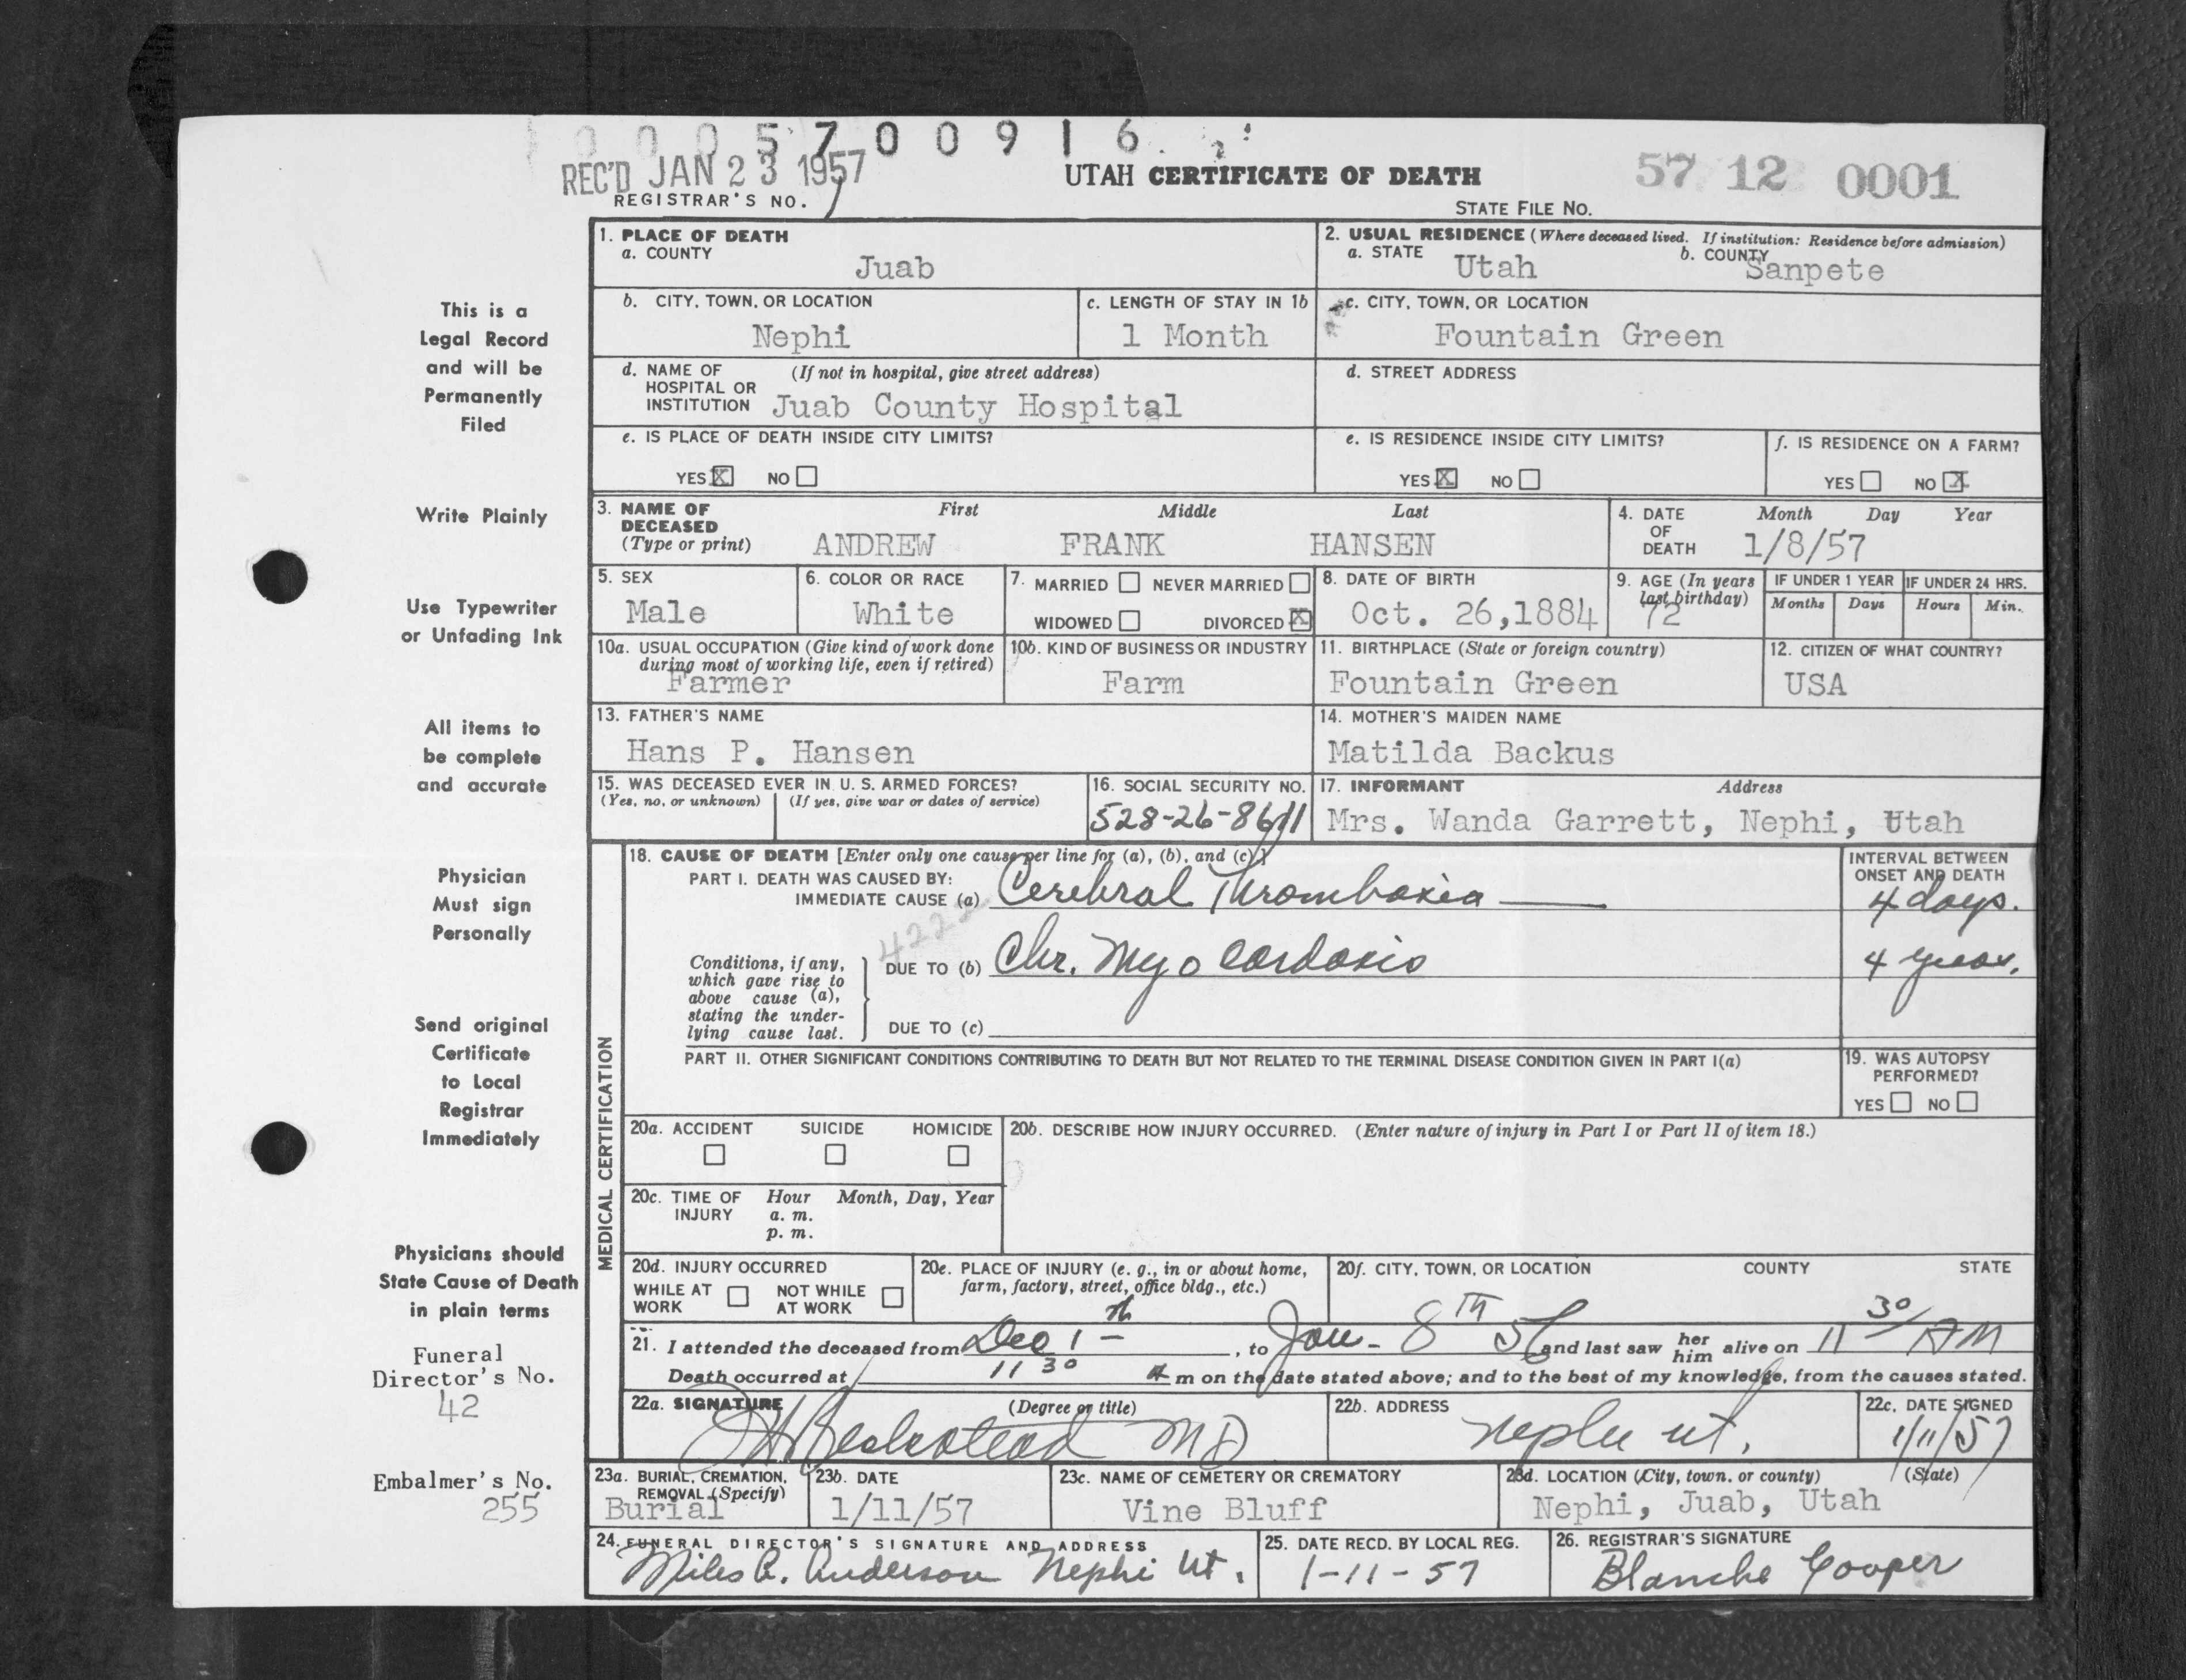 0005700916
REC'D JAN 23 1957
UTAH CERTIFICATE OF DEATH
57 12 0001
REGISTRAR'S NO. 1
STATE FILE NO.
1. PLACE OF DEATH
a. COUNTY
Juab
2. USUAL RESIDENCE (Where deceased lived. If institution: Residence before admission)
a. STATE Utah b. COUNTY Sanpete
b. CITY, TOWN, OR LOCATION
Nephi
c. LENGTH OF STAY IN 1b
1 Month
c. CITY, TOWN, OR LOCATION
Fountain Green
d. NAME OF HOSPITAL OR INSTITUTION (If not in hospital, give street address)
Juab County Hospital
d. STREET ADDRESS
e. IS PLACE OF DEATH INSIDE CITY LIMITS?
YES X NO
e. IS RESIDENCE INSIDE CITY LIMITS?
YES X NO
f. IS RESIDENCE ON A FARM?
YES NO X
3. NAME OF DECEASED (Type or print)
First Middle Last
ANDREW FRANK HANSEN
4. DATE OF DEATH
Month Day Year
1/8/57
5. SEX
Male
6. COLOR OR RACE
White
7. MARRIED NEVER MARRIED
WIDOWED DIVORCED X
8. DATE OF BIRTH
Oct. 26,1884
9. AGE (In years last birthday)
72
IF UNDER 1 YEAR
Months Days
IF UNDER 24 HRS.
Hours Min.
10a. USUAL OCCUPATION (Give kind of work done during most of working life, even if retired)
Farmer
10b. KIND OF BUSINESS OR INDUSTRY
Farm
11. BIRTHPLACE (State or foreign country)
Fountain Green
12. CITIZEN OF WHAT COUNTRY?
USA
13. FATHER'S NAME
Hans P. Hansen
14. MOTHER'S MAIDEN NAME
Matilda Backus
15. WAS DECEASED EVER IN U. S. ARMED FORCES?
(Yes, no, or unknown) (If yes, give war or dates of service)
16. SOCIAL SECURITY NO.
528-26-8611
17. INFORMANT Address
Mrs. Wanda Garrett, Nephi, Utah
MEDICAL CERTIFICATION
18. CAUSE OF DEATH [Enter only one cause per line for (a), (b), and (c)]
INTERVAL BETWEEN ONSET AND DEATH
PART I. DEATH WAS CAUSED BY:
IMMEDIATE CAUSE (a) Cerebral Thrombosis
4 days.
Conditions, if any, which gave rise to above cause (a), stating the underlying cause last.
DUE TO (b) Chr. Myocardosis
4 years.
DUE TO (c)
PART II. OTHER SIGNIFICANT CONDITIONS CONTRIBUTING TO DEATH BUT NOT RELATED TO THE TERMINAL DISEASE CONDITION GIVEN IN PART I(a)
19. WAS AUTOPSY PERFORMED?
YES NO
20a. ACCIDENT SUICIDE HOMICIDE
20b. DESCRIBE HOW INJURY OCCURRED. (Enter nature of injury in Part I or Part II of item 18.)
20c. TIME OF INJURY Hour Month, Day, Year
a. m.
p. m.
20d. INJURY OCCURRED
WHILE AT WORK NOT WHILE AT WORK
20e. PLACE OF INJURY (e. g., in or about home, farm, factory, street, office bldg., etc.)
20f. CITY, TOWN, OR LOCATION COUNTY STATE
21. I attended the deceased from Dec 1th, to Jan- 8TH 56 and last saw her him alive on 11 30 AM
Death occurred at 11 30 A m on the date stated above; and to the best of my knowledge, from the causes stated.
22a. SIGNATURE (Degree or title)
Beckstead MD
22b. ADDRESS
Nephi Ut.
22c. DATE SIGNED
1/11/57
23a. BURIAL, CREMATION, REMOVAL (Specify)
Burial
23b. DATE
1/11/57
23c. NAME OF CEMETERY OR CREMATORY
Vine Bluff
23d. LOCATION (City, town, or county) (State)
Nephi, Juab, Utah
24. FUNERAL DIRECTOR'S SIGNATURE AND ADDRESS
Miles A. Anderson Nephi Ut.
25. DATE RECD. BY LOCAL REG.
1-11-57
26. REGISTRAR'S SIGNATURE
Blanche Cooper
This is a
Legal Record
and will be
Permanently
Filed
Write Plainly
Use Typewriter
or Unfading Ink
All items to
be complete
and accurate
Physician
Must sign
Personally
Send original
Certificate
to Local
Registrar
Immediately
Physicians should
State Cause of Death
in plain terms
Funeral
Director's No.
42
Embalmer's No.
255